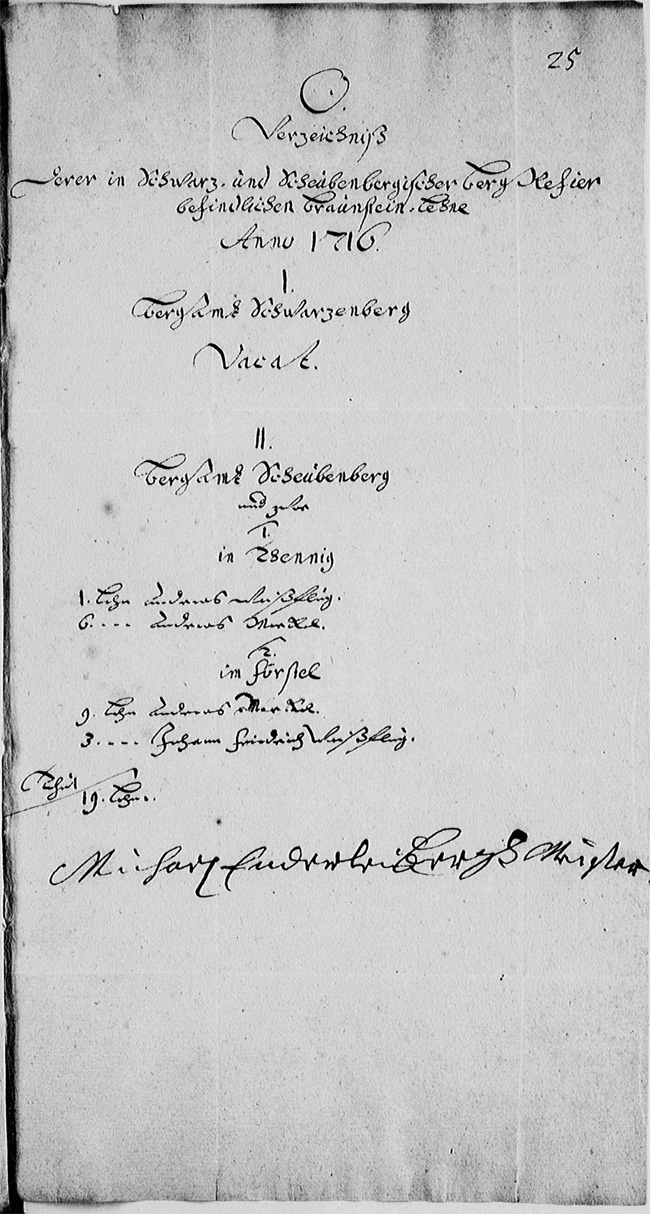 25
O.
Verzeichniß
Derer in Schwarz- und Scheübenbergischer Berg Refier
befindlichen Braünstein-Lehne
Anno 1716.
I.
BergAmt Schwarzenberg
Vacat.
II.
BergAmt Scheübenberg
und zwar
1.
in
1. Lehn Andreas Meißflüg.
6. --- Andreas Merkel.
2.
im Förstel
9. Lehn Andreas Merkel.
3. --- Johann Friedrich Meißflüg.
Thut
19. Lehn.
Michael Enderlein BergkMeister